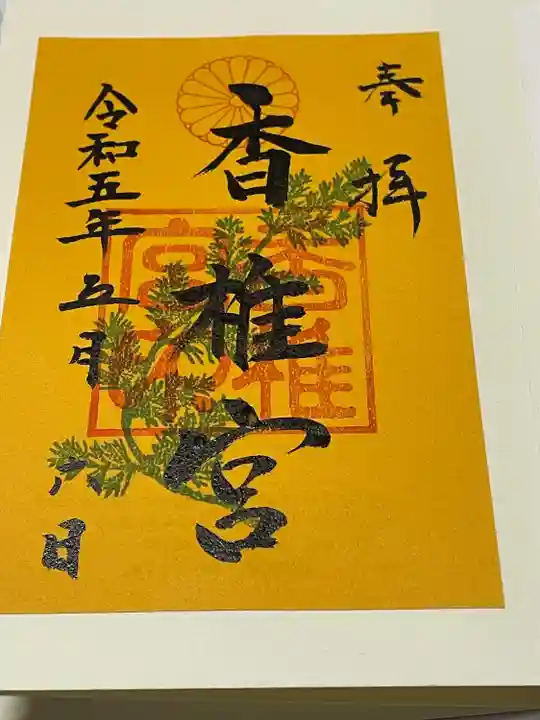 奉拝
香椎宮
令和五年五月六日